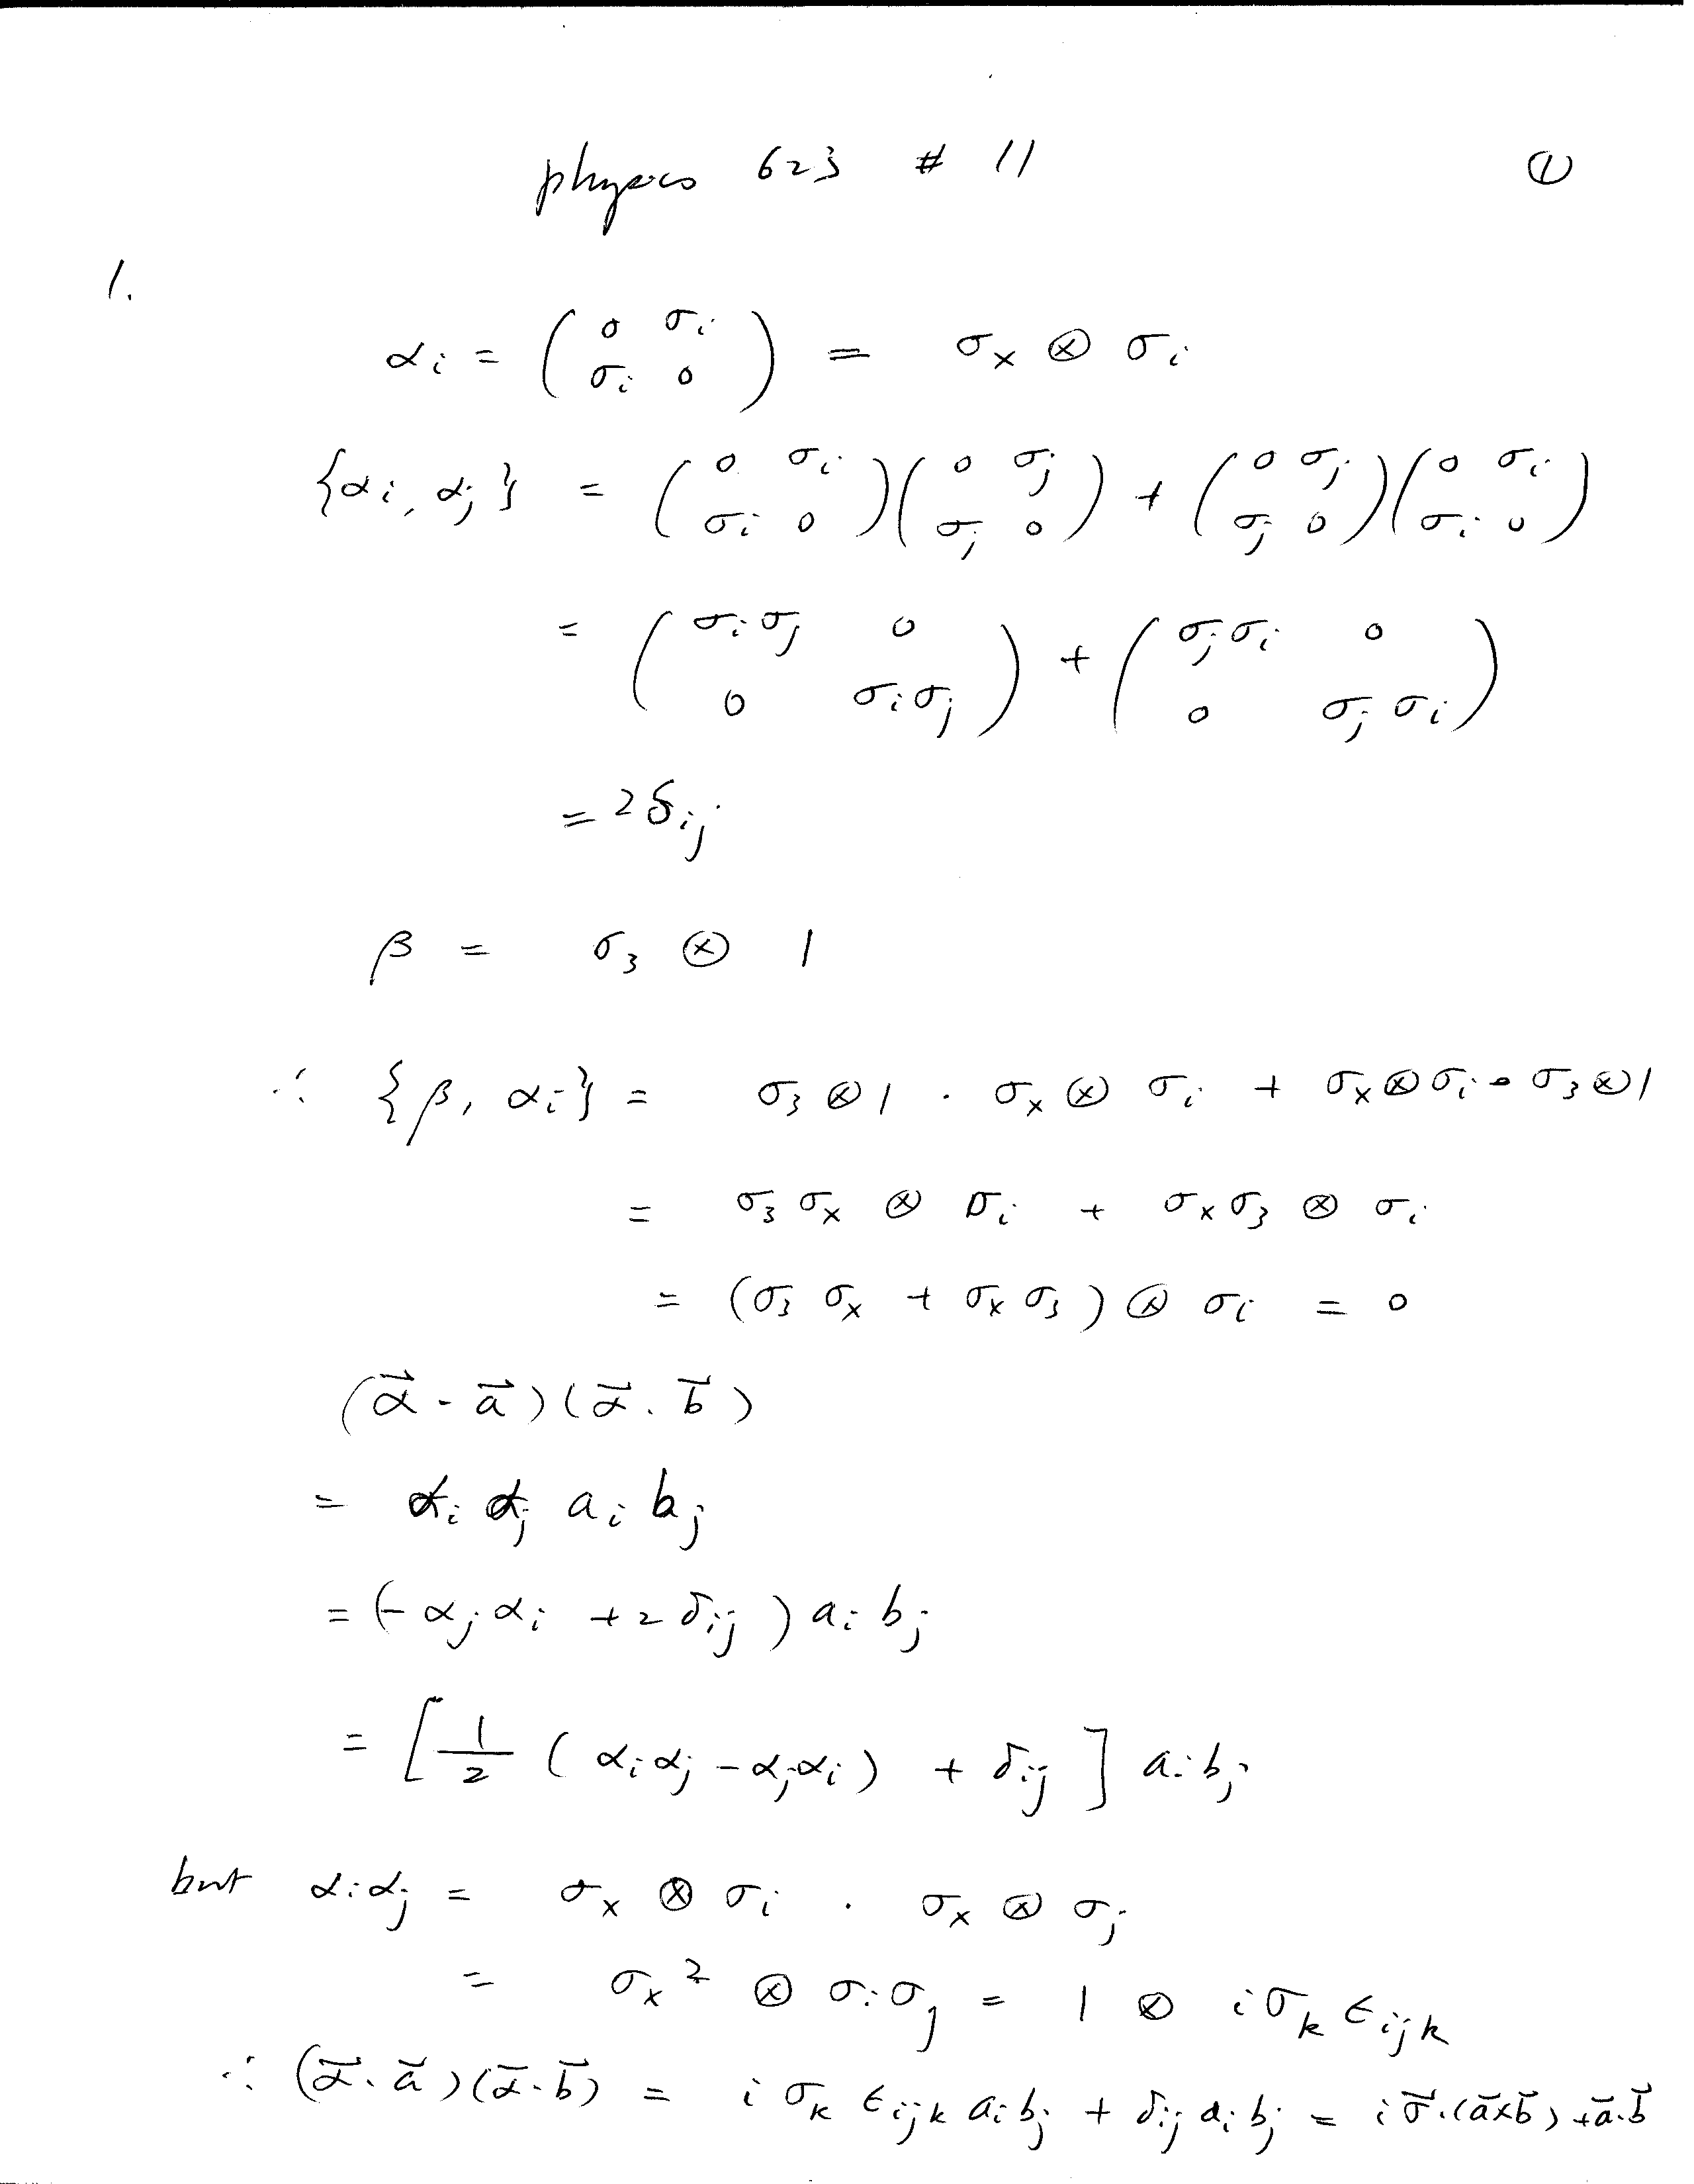 physics 623 # 11 ①
1.
αi = ( 0 σi ; σi 0 ) = σx ⊗ σi
{αi, αj} = ( 0 σi ; σi 0 )( 0 σj ; σj 0 ) + ( 0 σj ; σj 0 )( 0 σi ; σi 0 )
= ( σiσj 0 ; 0 σiσj ) + ( σjσi 0 ; 0 σjσi )
= 2δij
β = σ3 ⊗ 1
∴ {β, αi} = σ3 ⊗ 1 · σx ⊗ σi + σx ⊗ σi · σ3 ⊗ 1
= σ3 σx ⊗ σi + σx σ3 ⊗ σi
= (σ3 σx + σx σ3) ⊗ σi = 0
(α⃗ · a⃗)(α⃗ · b⃗)
= αi αj ai bj
= (- αj αi + 2 δij) ai bj
= [ 1/2 ( αi αj - αj αi ) + δij ] ai bj
but αi αj = σx ⊗ σi · σx ⊗ σj
= σx² ⊗ σi σj = 1 ⊗ i σk εijk
∴ (α⃗ · a⃗)(α⃗ · b⃗) = i σk εijk ai bj + δij ai bj = i σ⃗ · (a⃗ × b⃗) + a⃗ · b⃗